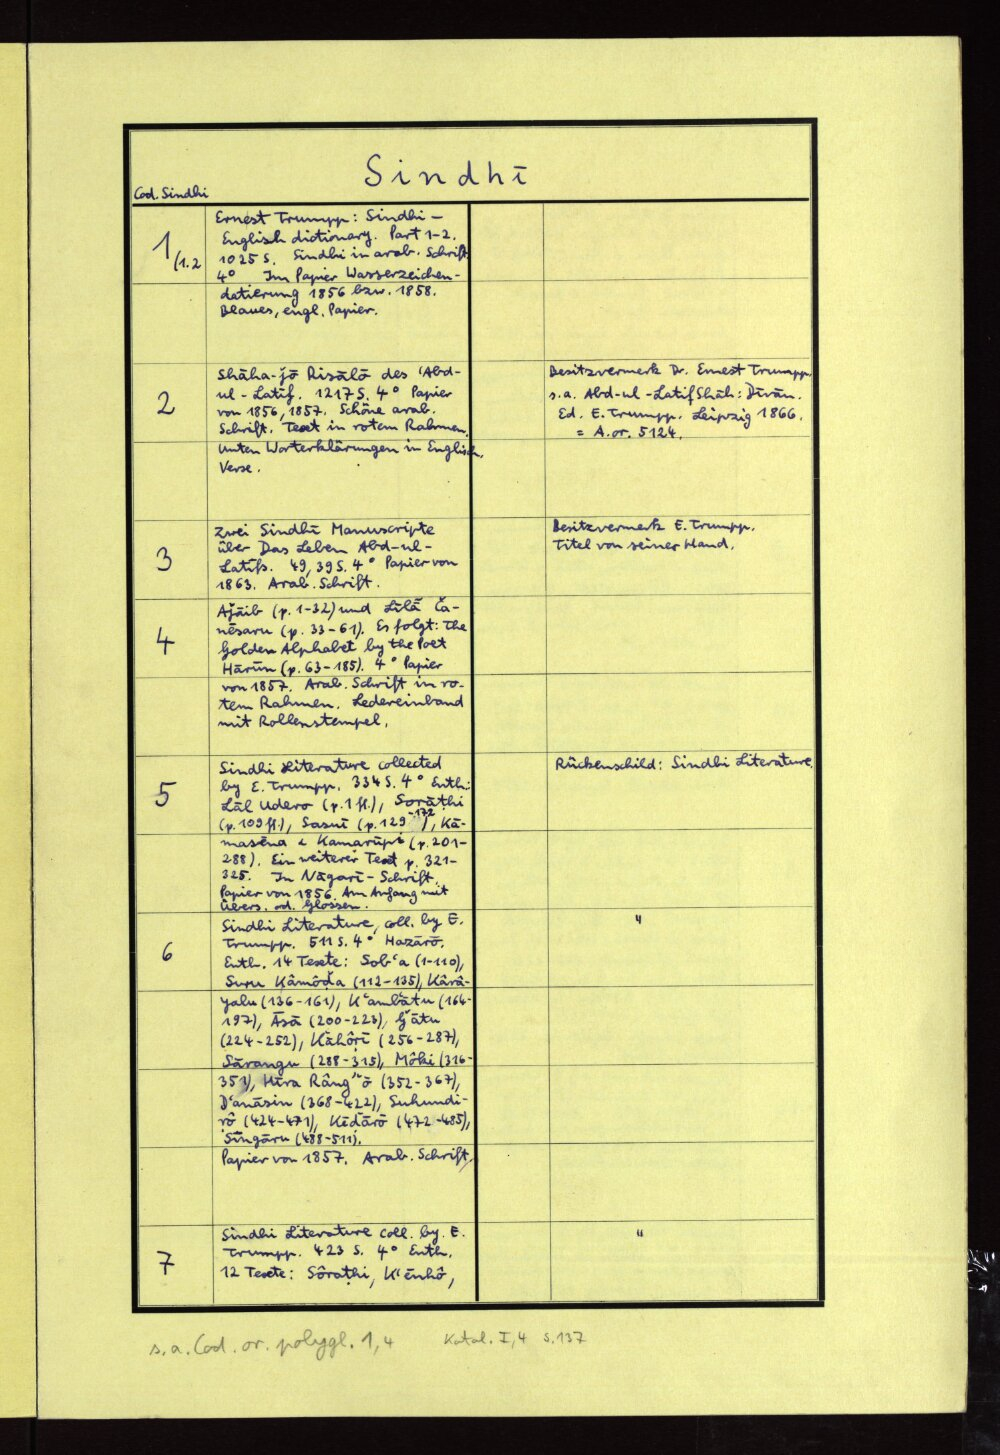 Sindhī
Cod. Sindhi
1 (1.2
Ernest Trumpp: Sindhi –
English dictionary. Part 1-2.
1025 S. Sindhi in arab. Schrift
4° Im Papier Wasserzeichen-
datierung 1856 bzw. 1858.
Blaues, engl. Papier.
2
Shāha-jō Risālō des 'Abd-
ul-Latīf. 1217 S. 4° Papier
von 1856, 1857. Schöne arab.
Schrift. Text in rotem Rahmen.
Unten Worterklärungen in Englisch.
Verse.
Besitzvermerk Dr. Ernest Trumpp.
s.a. Abd-ul-Latif Shāh: Dīvān.
Ed. E. Trumpp. Leipzig 1866.
= A.or. 5124.
3
Zwei Sindhī Manuscripte
über Das Leben Abd-ul-
Latīfs. 49, 39 S. 4° Papier von
1863. Arab. Schrift.
Besitzvermerk E. Trumpp.
Titel von seiner Hand.
4
Ajāib (p. 1-32) und Līlā Ča-
nēsaru (p. 33-61). Es folgt: The
Golden Alphabet by the Poet
Hārūn (p. 63-185). 4° Papier
von 1857. Arab. Schrift in ro-
tem Rahmen. Ledereinband
mit Rollenstempel.
5
Sindhi Literature collected
by E. Trumpp. 334 S. 4° Enth.:
Lāl Udero (p. 1 ff.), Sorāṭhi
(p. 109 ff.), Sasuī (p. 129-172), Kā-
masēna & Kamarūpi (p. 201-
288). Ein weiterer Text p. 321-
325. In Nāgarī-Schrift.
Papier von 1856. Am Anfang mit
Übers. od. Glossen.
Rückenschild: Sindhi Literature.
6
Sindhi Literature, coll. by E.
Trumpp. 511 S. 4° Hazārō.
Enth. 14 Texte: Sob'a (1-110),
Suru Kâmôḍa (112-135), Kârâ-
yalu (136-161), K'ambātu (164-
197), Āsā (200-223), G̈ātu
(224-252), Kāhôrī (256-287),
Sārangu (288-315), Môki (316-
351), Hīra Râng"ō (352-367),
D'anāsin (368-422), Suhundi-
rô (424-471), Kēdārō (472-485),
Sīngāru (488-511).
Papier von 1857. Arab. Schrift.
"
7
Sindhi Literature coll. by. E.
Trumpp. 423 S. 4° Enth.
12 Texte: Sôraṭhi, K'ēnhô,
"
s.a. Cod. or. polygl. 1,4 Katal. I,4 S.137